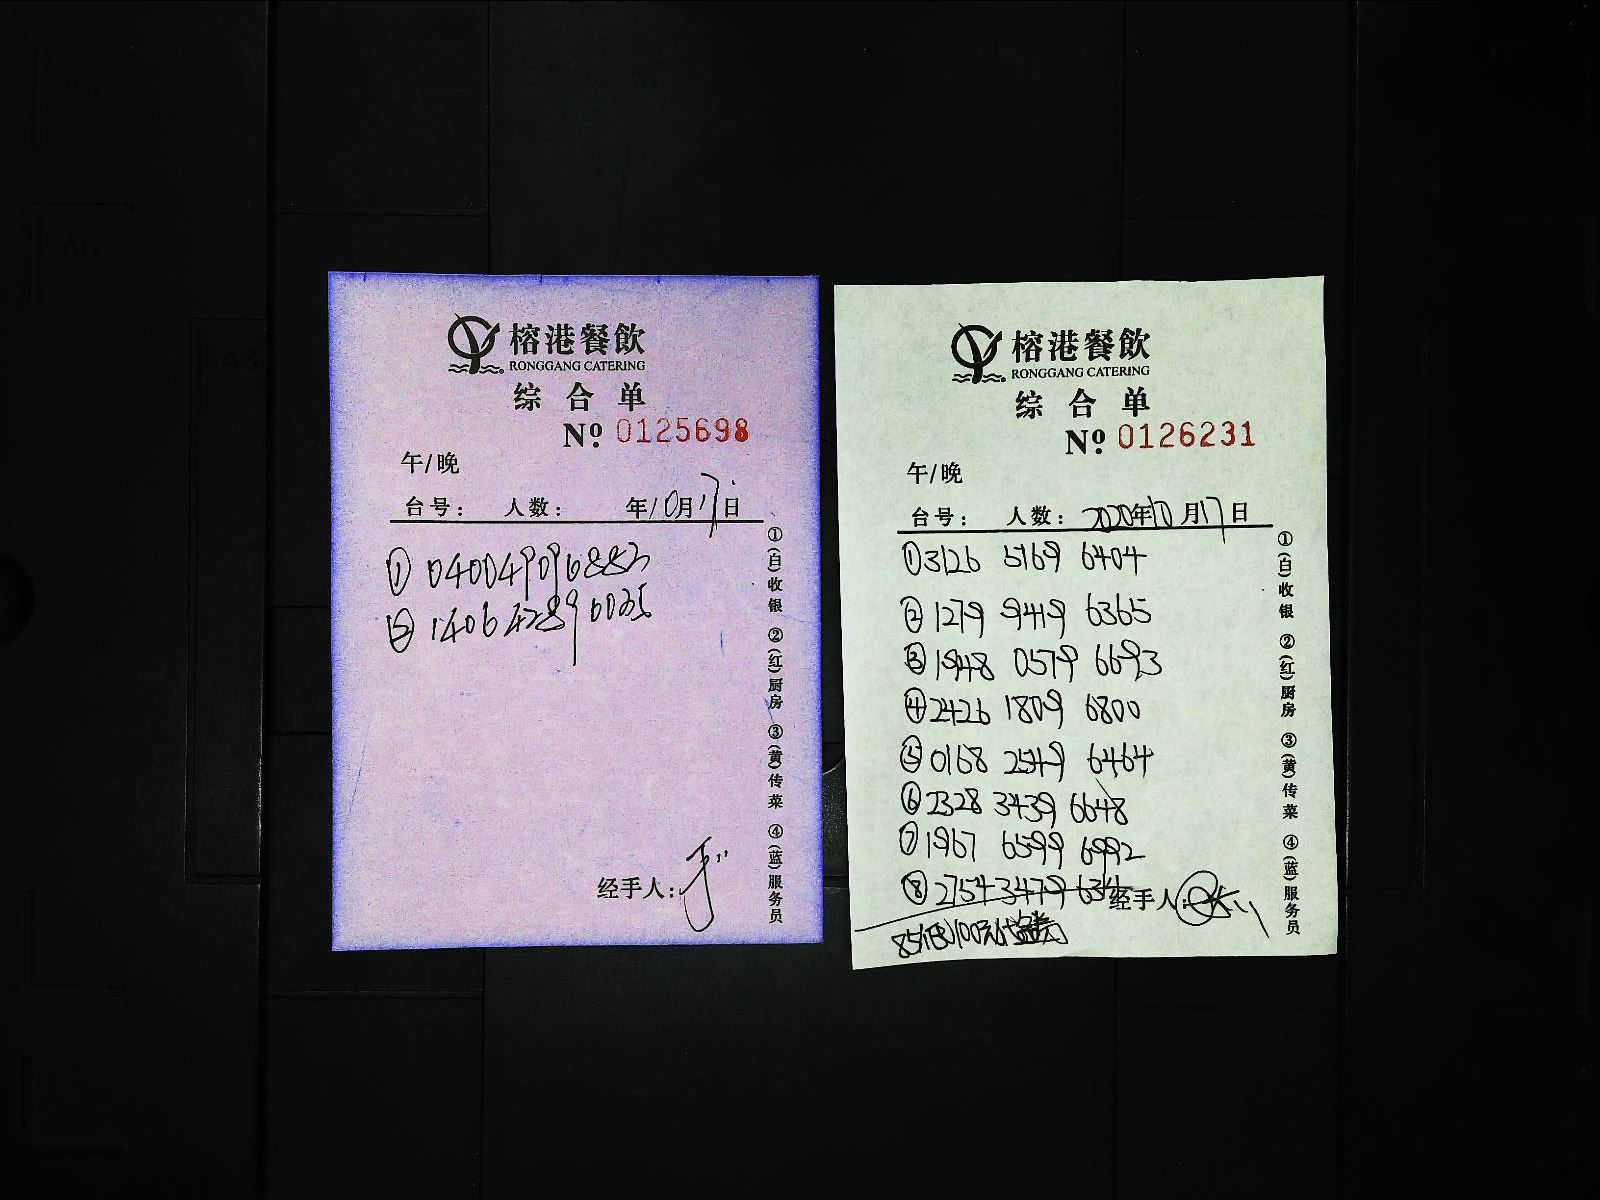 榕港餐飲
RONGGANG CATERING
综合单
Nº 0125698
午/晚
台号: 人数: 年10月17日
① 040049096883
② 140642896035
经手人:
①(白)收银 ②(红)厨房 ③(黄)传菜 ④(蓝)服务员
榕港餐飲
RONGGANG CATERING
综合单
Nº 0126231
午/晚
台号: 人数: 2020年10月17日
①3126 5169 6404
②1279 9419 6365
③1948 0579 6693
④2426 1809 6800
⑤0168 2549 6464
⑥2328 3439 6648
⑦1967 6599 6992
⑧2754 3479 634
经手人:
85抵100元代金券
①(白)收银 ②(红)厨房 ③(黄)传菜 ④(蓝)服务员